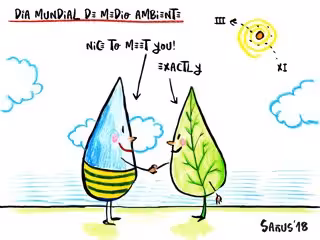 DIA MUNDIAL DE MEDIO AMBIENTE
III
NICE TO MEET YOU!
EXACTLY
XI
SARUS'18